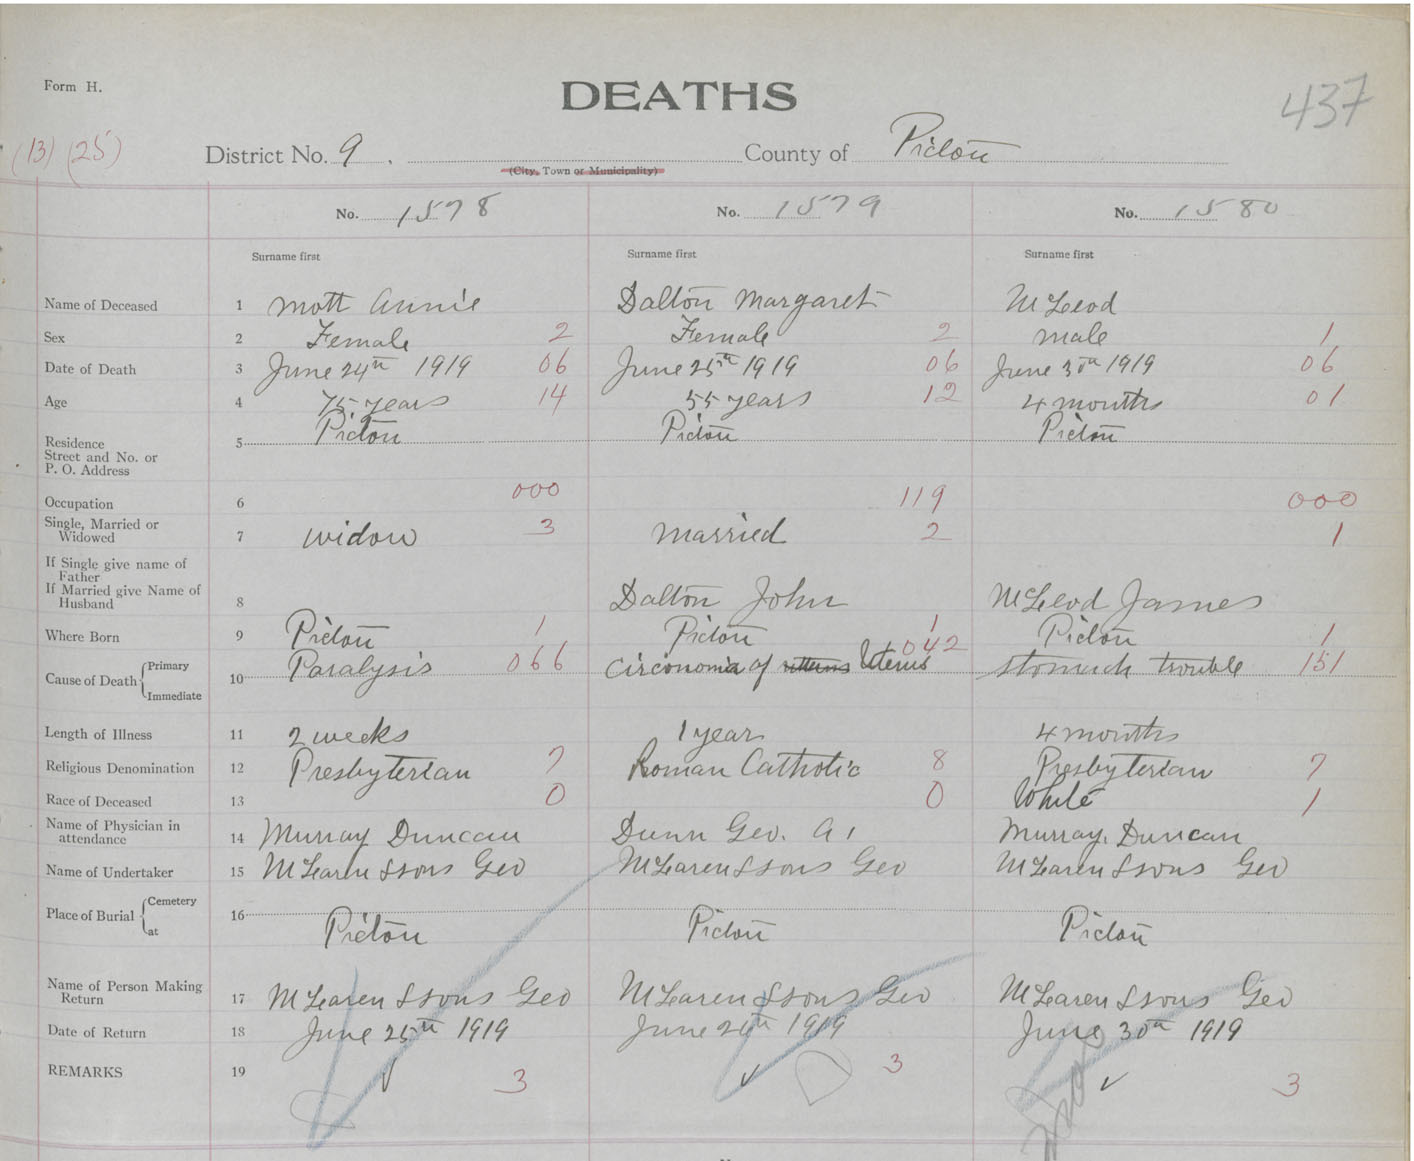 Form H.
DEATHS
437
(13) (25)
District No. 9 .
County of Pictou
(City, Town or Municipality)
No. 1578 No. 1579 No. 1580
Surname first Surname first Surname first
Name of Deceased 1 Mott Annie Dalton Margaret McLeod
Sex 2 Female 2 Female 2 male 1
Date of Death 3 June 24th 1919 06 June 25th 1919 06 June 30th 1919 06
Age 4 75 years 14 55 years 12 4 months 01
Residence 5 Pictou Pictou Pictou
Street and No. or
P. O. Address
Occupation 6 000 119 000
Single, Married or
Widowed 7 widow 3 married 2 1
If Single give name of
Father
If Married give Name of
Husband 8 Dalton John McLeod James
Where Born 9 Pictou 1 Pictou 1 Pictou 1
Cause of Death Primary 10 Paralysis 066 Circonomia of utterus Uterus 042 stomach trouble 151
Immediate
Length of Illness 11 2 weeks 1 year 4 months
Religious Denomination 12 Presbyterian 7 Roman Catholic 8 Presbyterian 7
Race of Deceased 13 0 0 White 1
Name of Physician in
attendance 14 Murray Duncan Dunn Geo. A. Murray, Duncan
Name of Undertaker 15 McLaren & Sons Geo McLaren & Sons Geo McLaren & Sons Geo
Place of Burial Cemetery 16
at Pictou Pictou Pictou
Name of Person Making
Return 17 McLaren & Sons Geo McLaren & Sons Geo McLaren & Sons Geo
Date of Return 18 June 25th 1919 June 26th 1919 June 30th 1919
REMARKS 19 ✓ 3 ✓ 3 ✓ 3